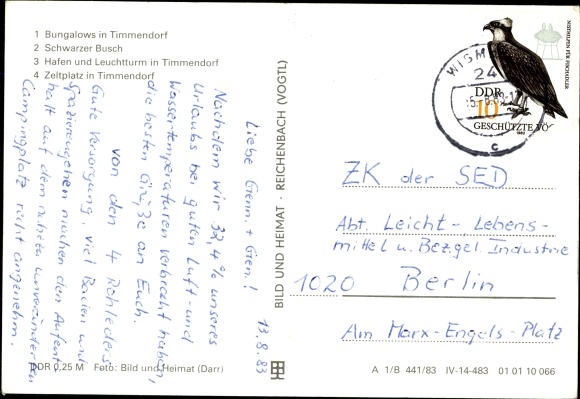 1 Bungalows in Timmendorf
2 Schwarzer Busch
3 Hafen und Leuchtturm in Timmendorf
4 Zeltplatz in Timmendorf
13.8.83
Liebe Genn. + Gen.!
Nachdem wir 33,4 % unseres
Urlaubs bei guten Luft- und
Wassertemperaturen verbracht haben,
die besten Grüße an Euch.
von den 4 Rohleders
Gute Versorgung, viel Baden und
Spazierengehen machen den Aufent-
halt auf dem
Campingplatz recht angenehm.
DDR 0,25 M Foto: Bild und Heimat (Darr)
BILD UND HEIMAT · REICHENBACH (VOGTL)
NISTHILFEN FÜR FISCHADLER
WISM
24
DDR
10
GESCHÜTZTE VÖ
c
ZK der SED
Abt. Leicht- Lebens-
mittel u. Bezgel. Industrie
1020 Berlin
Am Marx-Engels-Platz
A 1/B 441/83 IV-14-483 01 01 10 066